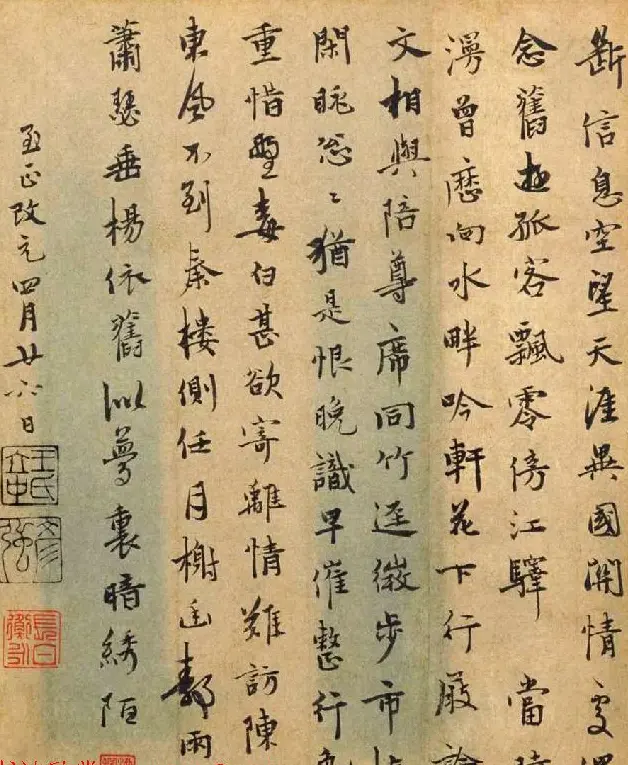 斷信息空望天涯異國關情
念舊孤客飄零傍江驛 當
漫曾歷向水畔吟軒花下行廚論
文相與陪尊席同竹逕緩步市
閑眺怱〻猶是恨晚識早催整行
重惜鬢毛白甚欲寄離情難訪陳
東風不到秦樓側任月榭雨
蕭瑟垂楊依舊似夢裏暗綉陌
至正改元四月廿六日
王氏立中
彥強